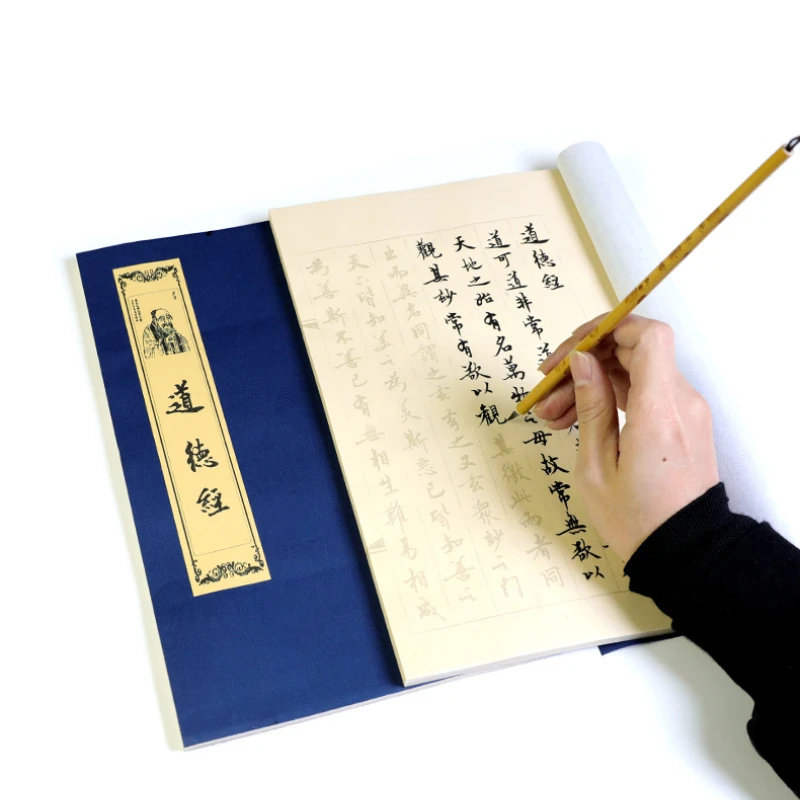 道德經
道德經
道可道非常
天地之始有名萬物之母故常無欲以
觀其妙常有欲以觀其徼此兩者同
出而異名同謂之玄玄之又玄眾妙之門
天下皆知美之為美斯惡已皆知善之
為善斯不善已有無相生難易相成